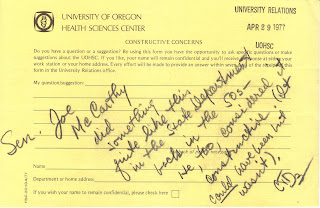 UNIVERSITY OF OREGON
HEALTH SCIENCES CENTER
UNIVERSITY RELATIONS
APR 29 1977
UOHSC
CONSTRUCTIVE CONCERNS
Do you have a question or a suggestion? By using this form you have the opportunity to ask specific questions or make
suggestions about the UOHSC. If you like, your name will remain confidential and you'll receive at either your
work station or your home address. Every effort will be made to provide an answer within seven of the
form in the University Relations office.
My question/suggestion:
Sen. Joe
McCarthy
did
something
quite like this
in the State Department
back in the 50s—
He, too, considered it
constructive. (It
could have been but
wasn't).
Name
Department or home address
If you wish your name to remain confidential, please check here